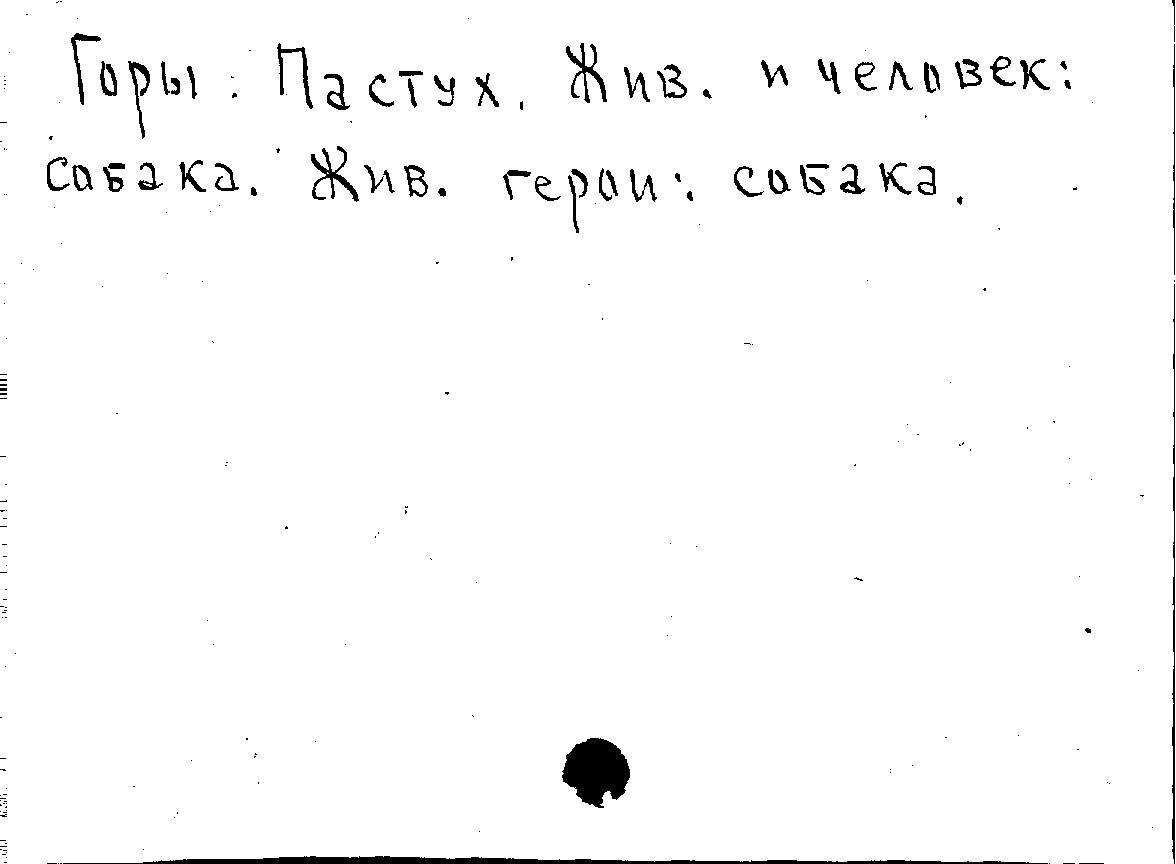 Горы: Пастух. Жив. и человек:
собака. Жив. герои: собака.